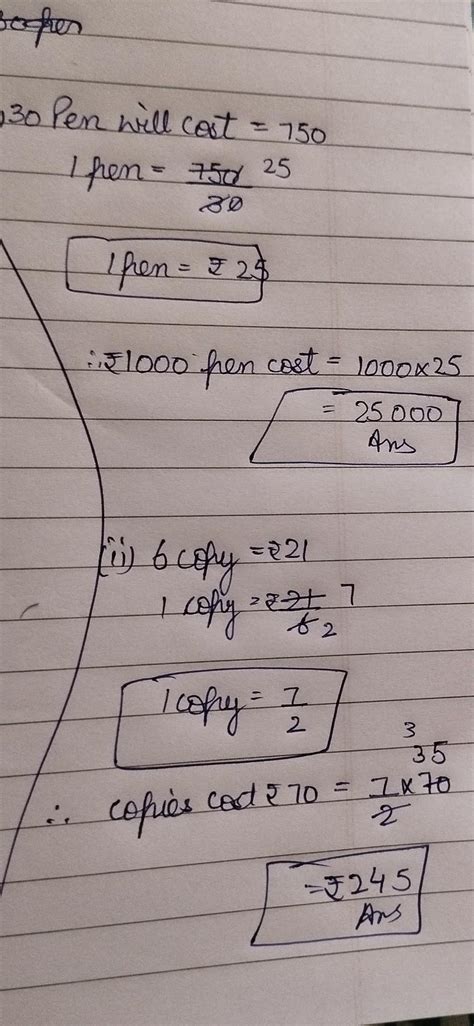 30 Pen will cost = 750
1 pen = 750/30 25
1 pen = ₹ 25
∴ ₹1000 pen cost = 1000×25
= 25000
Ans
(ii) 6 copy = ₹21
1 copy = ₹ 21/6 7 2
1 copy = 7/2
3
35
∴ copies cost ₹70 = 7/2 × 70
= ₹245
Ans